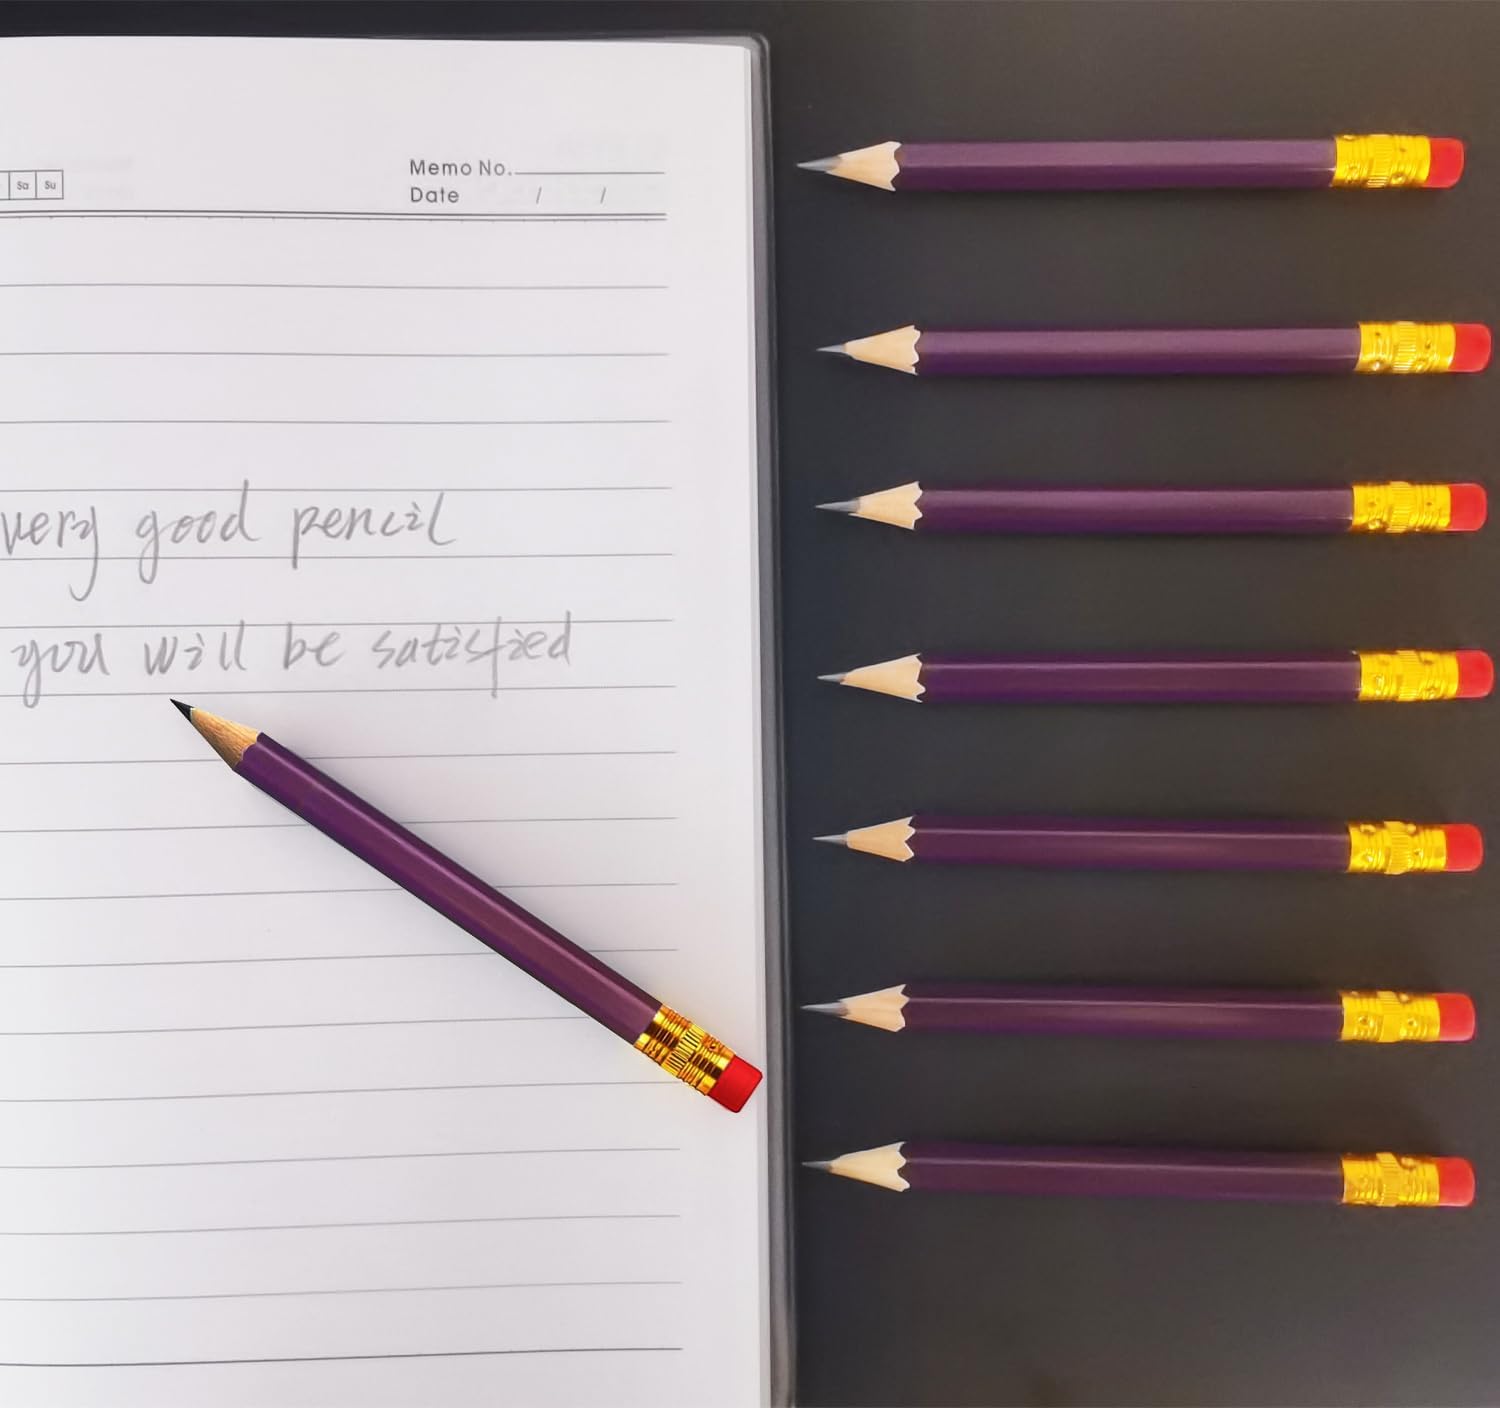 Sa Su
Memo No.
Date / /
very good pencil
you will be satisfied